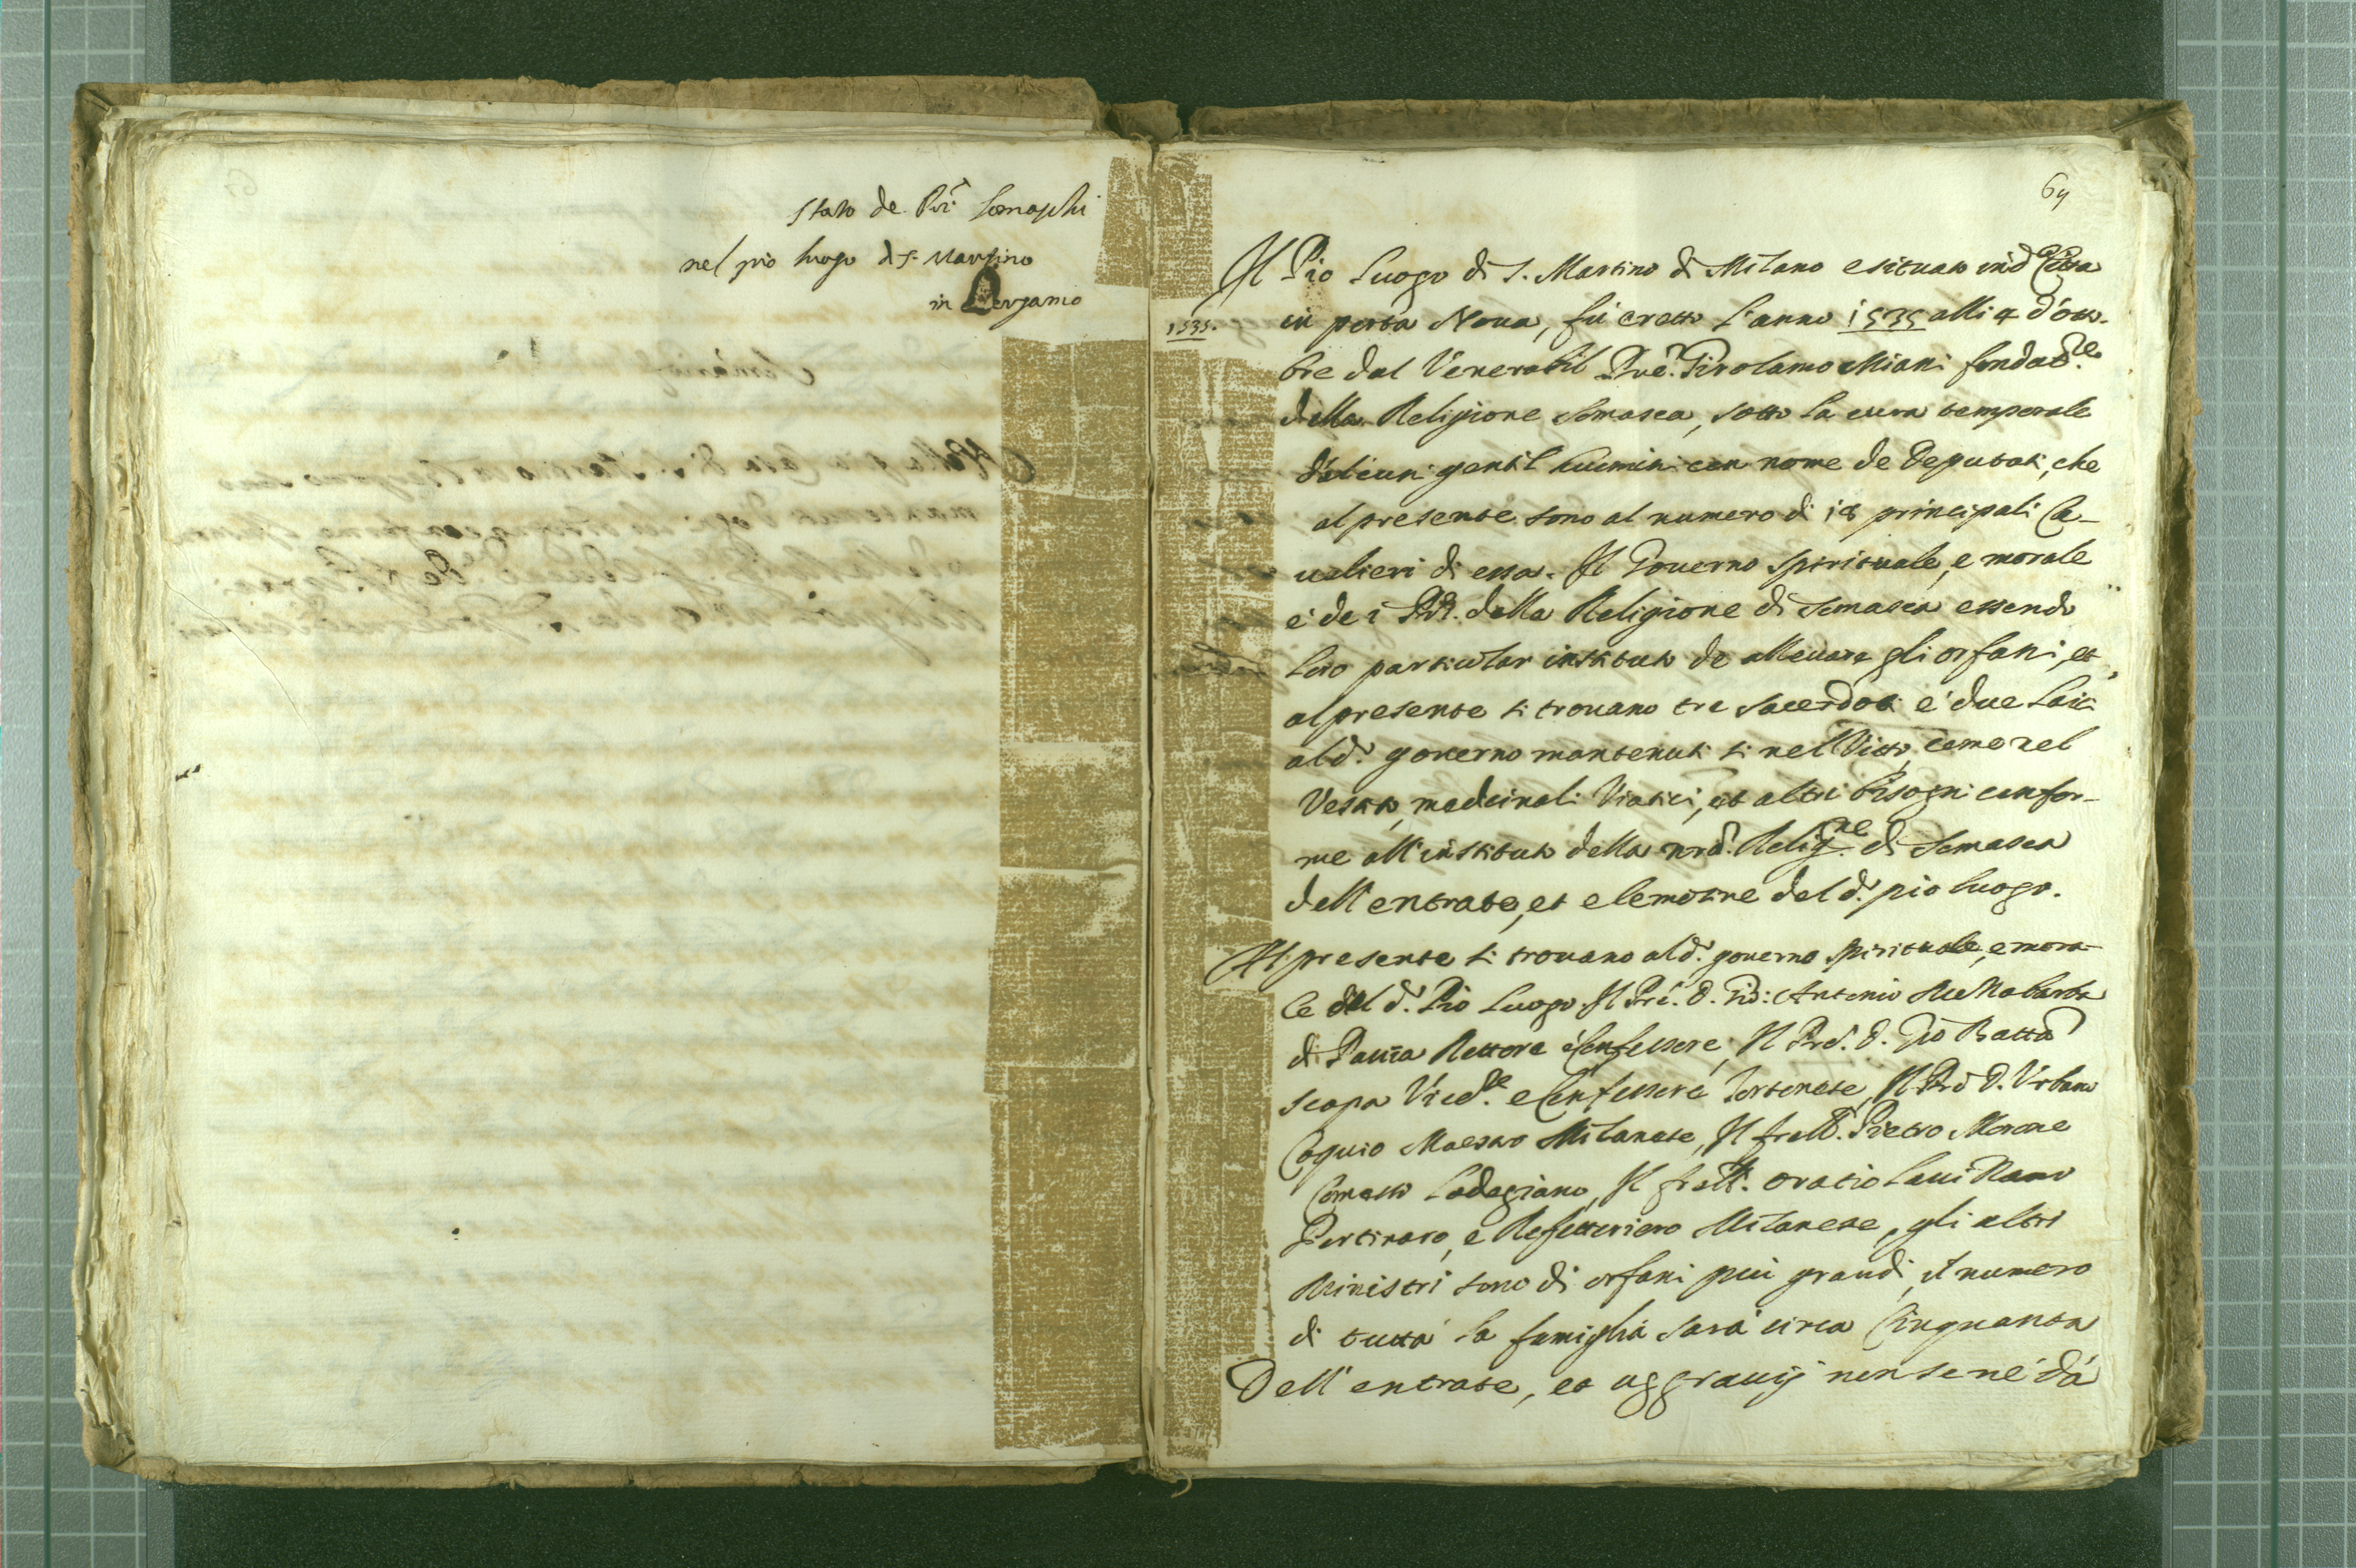 Stato de Pri Somaschi
nel pio luogo di S. Martino
in Bergamo
64
Il Pio Luogo di S. Martino di Milano e situato in d. Città
1535.
in porta Noua, fù eretto l'anno 1535 alli 4 d'otto-
bre dal Venerabil Pre. Girolamo Miani fondatre.
della Religione Somasca, sotto la cura temporale
d'alcuni gentil huomini con nome de Deputati, che
al presente sono al numero di 18 principali Ca-
ualieri di essa. Il Gouerno spirituale, e morale
e de i PP. della Religione di Somasca essendo
loro particular instituto de alleuare gli orfani, et
al presente si trouano tre sacerdoti e due laici
al d. gouerno mantenuti si nel Vitto, come nel
Vestito, medicinali Viatici, et altri bisogni confor-
me all'instituto della nrã. Religne. di Somasca
dell'entrate, et elemosine del d. pio luogo.
Al presente si trouano al d. gouerno spirituale, e mora-
le del d. Pio Luogo. Il Pre. D. Gio: Antonio
di Pauia Rettore e Confessore, Il Pre. D. Gio Batta
Scapa e Confessore Tortonese, Il Pre D. Vrbano
Coquio Maestro Milanese, Il frall. Pietro Morone
Comesso Lodegiano, Il frall. Oratio
Portinaro, e Refettoriero Milanese, gli altri
Ministri sono di orfani più grandi, il numero
di tutta la famiglia sarà circa Cinquanta
Dell'entrate, et aggrauij non se ne dà